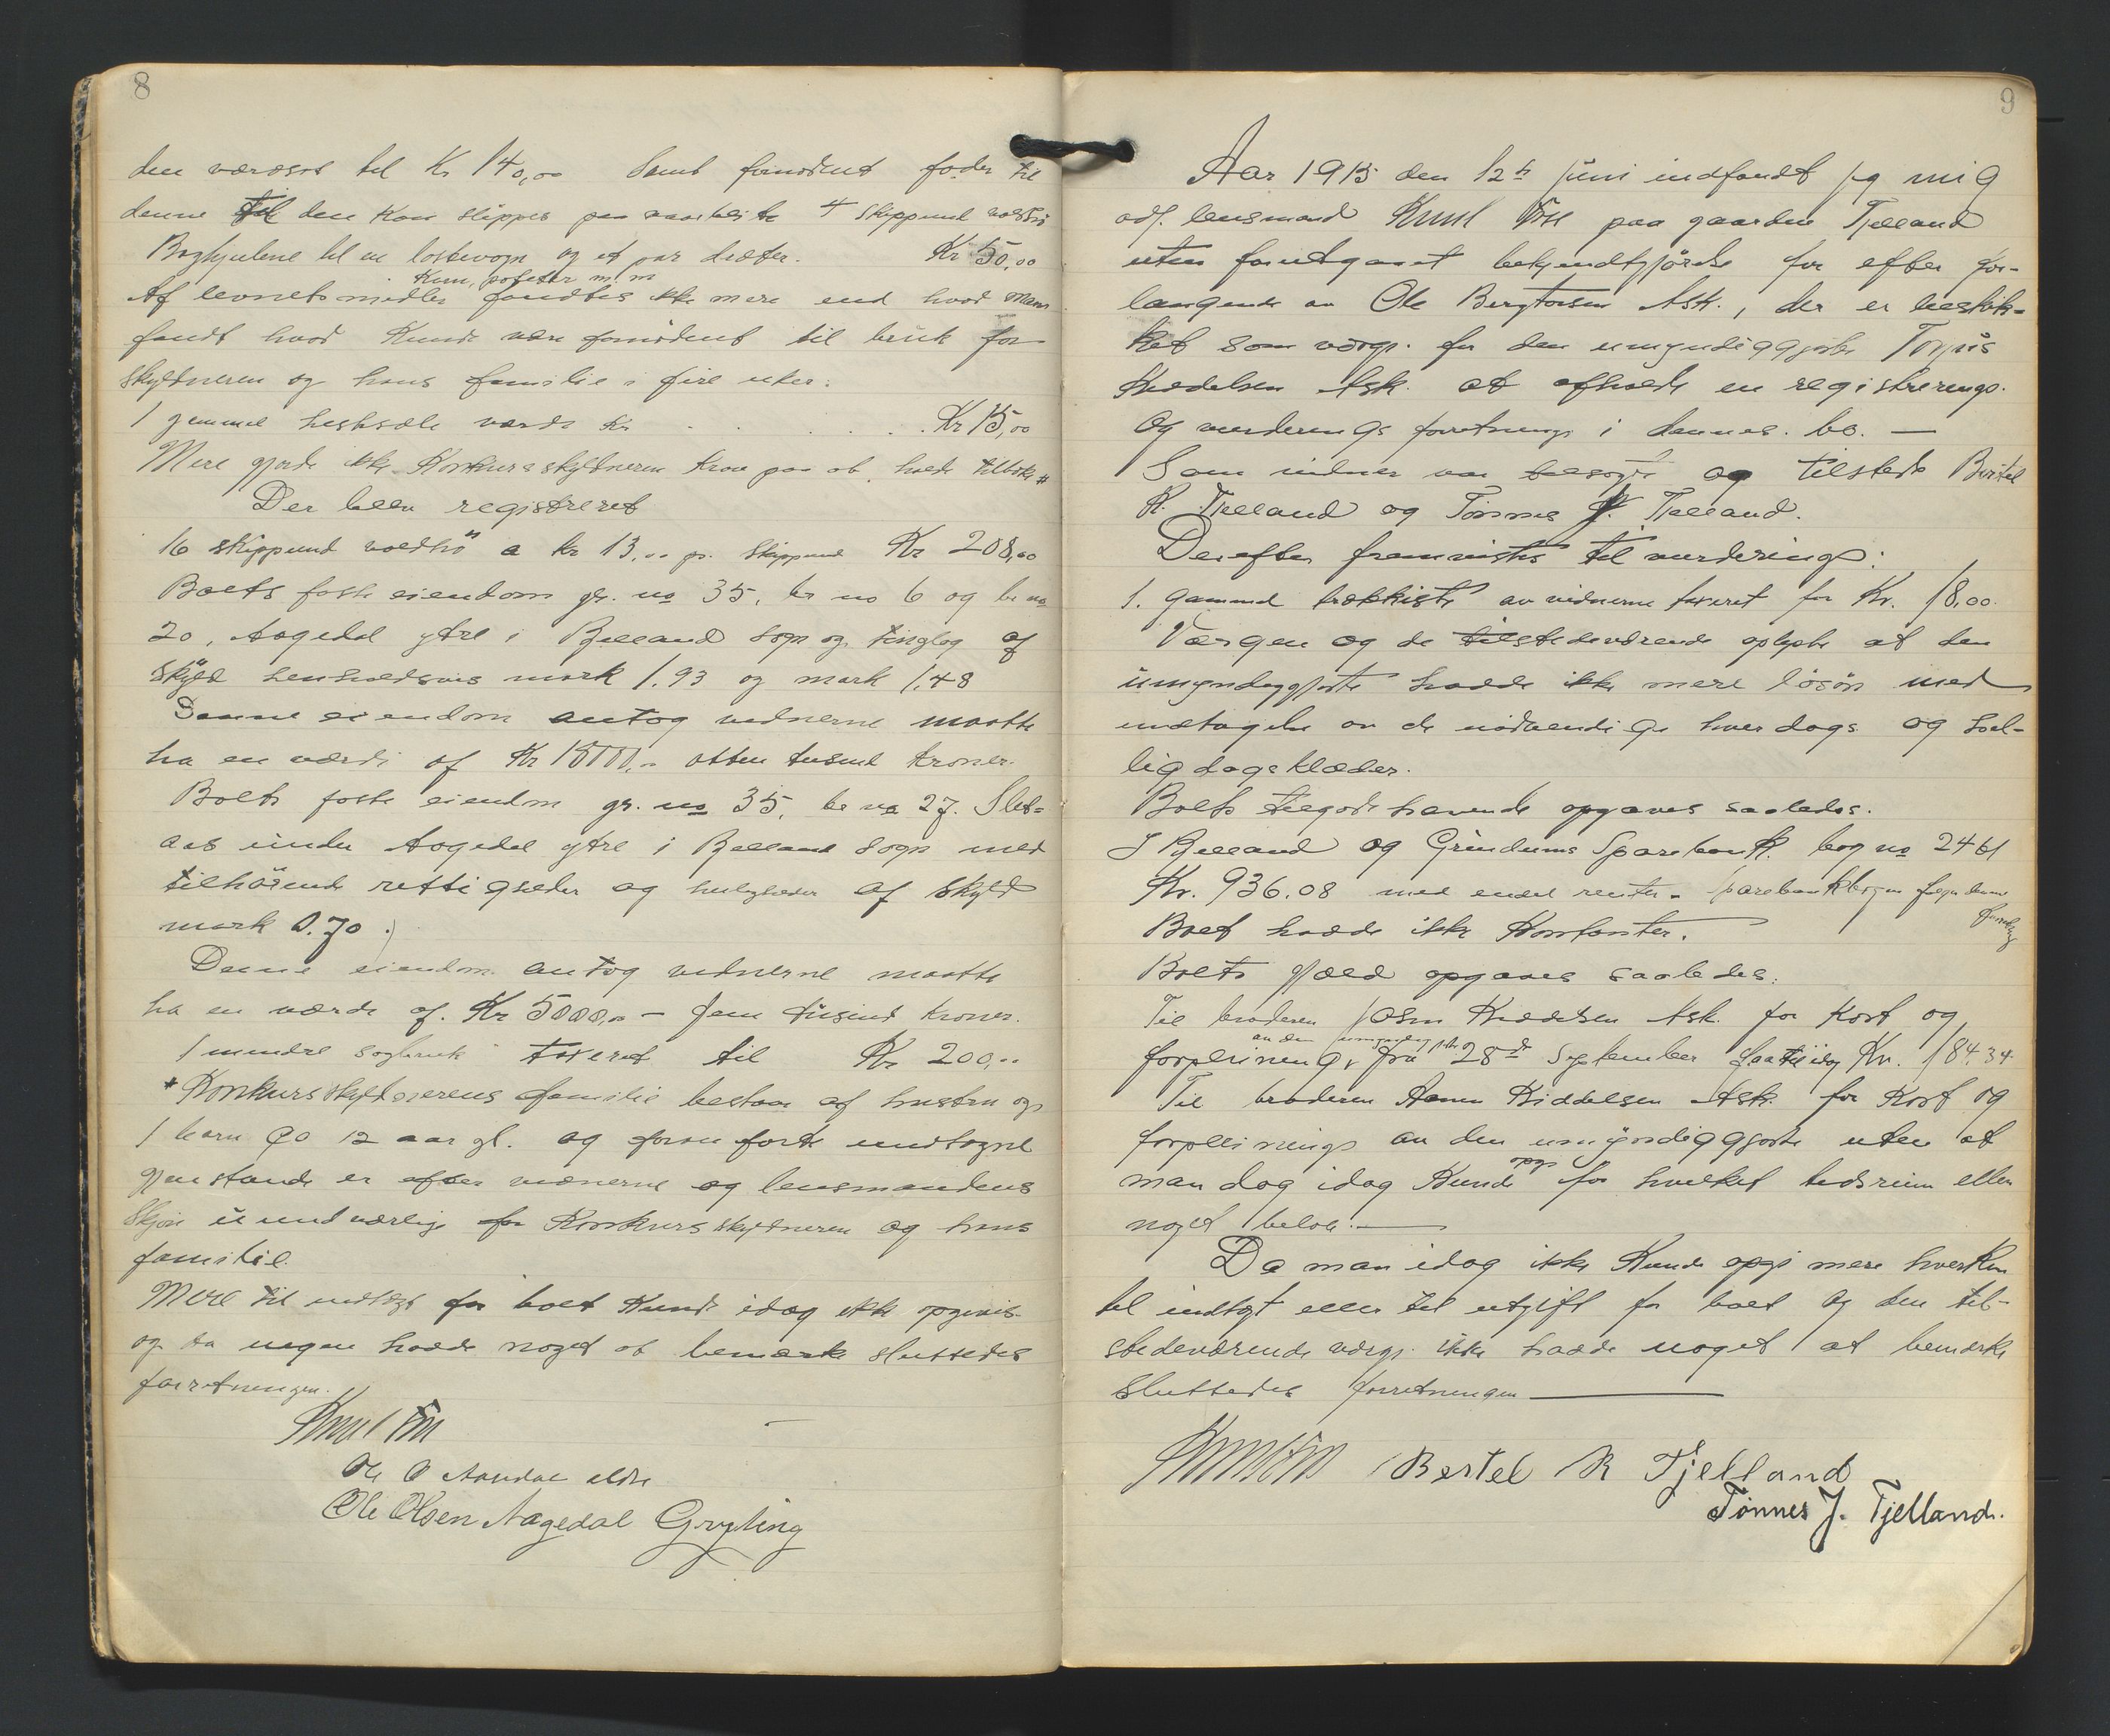 8
den værdsat til Kr 140,00 Samt fornødent foder til
denne til den kan slippes paa 4 skippund voldhö
Boghjulene til en lastevogn og et par dræter. Kr 50,00
Korn, poteter m m
Af levnetsmidler fandtes ikke mere end hvad man
fandt hvad kunde være fornødent til bruk for
skyldneren og hans familie i fire uker.
1 gammel hestsæle værdi Kr . . . . . Kr 15,00
Mere gjorde ikke Konkursskyldneren krav paa at holde tilbake #
Der blev registreret
16 skippund voldhö a kr 13,00 pr. skippund Kr 208,00
Boets faste eiendom gr. no 35, br no 6 og br no
20, Aagedal ytre i Bjelland sogn og tinglag af
skyld henholdsvis mark 1.93 og mark 1.48
Denne eiendom antog vidnerne maatte
ha en værdi af Kr 18000,- atten tusind kroner.
Boets faste eiendom gr. no 35, br no 27. Slet-
aas under Aagedal ytre i Bjelland sogn med
tilhörende rettigheder og herligheder af skyld
mark 0.70.
Denne eiendom antog vidnerne maatte
ha en værdi af. Kr 5000,00 - fem tusind kroner.
1 mindre sagbruk taxeret til Kr 200,00
# Konkursskyldnerens familie bestaar af hustru og
1 barn ca 12 aar gl. og foran forte undtagne
gjenstande er efter vidnerne og lensmandens
skjön uundværlige for Konkursskyldneren og hans
familie.
Mere til indtægt for boet kunde idag ikke opgives
og da ingen hadde noget at bemærke sluttedes
forretningen.
Knut Foss
Ole O Aamdal eldre
Ole Olsen Aagedal Gryting
9
Aar 1915 den 12te juni indfandt jeg mig
adj. lensmand Knut Foss paa gaarden Tjelland
uten forutgaaet bekjendtgjörelse for efter for-
langende av Ole Bergtorsen Ask., der er beskik-
ket som værge for den umyndiggjorte Torjus
Kiddelsen Ask. at afholde en registrerings-
og vurderings forretning i dennes. bo. —
Som vidner var besøgt og tilstede Bertel
R. Tjelland og Tönnes J. Tjelland.
Derefter fremvistes til vurdering:
1. gammel trækiste av vidnerne taxeret for Kr. 18,00.
Værgen og de tilstedeværende oplyste at den
umyndiggjorte hadde ikke mere lösöre med
undtagelse av de nödvendige hverdags og hel-
ligdagsklæder.
Boets tilgodehavende opgaves saaledes.
I Bjelland og Grindums Sparebank. bog no 2461
Kr. 936.08 med endel renter. Sparebankbogen følger denne
forretning
Boet hadde ikke Kontanter.
Boets gjæld opgaves saaledes:
Til broderen Kiddelsen Ask. for Kost og
av den umyndiggjorte
forpleining, fra 28de September saa til idag Kr. 184.34
Til broderen Kiddelsen Ask. for Kost og
forpleining av den umyndiggjorte uten at
opgi
man dog idag kunde for hvilket tidsrum eller
noget beløb. —
Da man idag ikke kunde opgi mere hverken
til indtægt eller til utgift for boet og den til-
stedeværende værge ikke hadde noget at bemærke
sluttedes forretningen —
Knut Foss Bertel R Tjelland
Tønnes J. Tjelland.